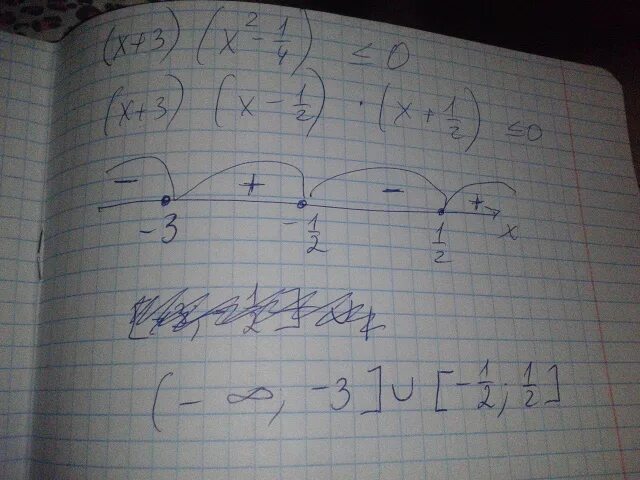 (x+3) (x² - 1/4) ≤ 0
(x+3) (x - 1/2) · (x + 1/2) ≤ 0
- + - +
-3 -1/2 1/2 x
(-∞, -3] ∪ [-1/2; 1/2]